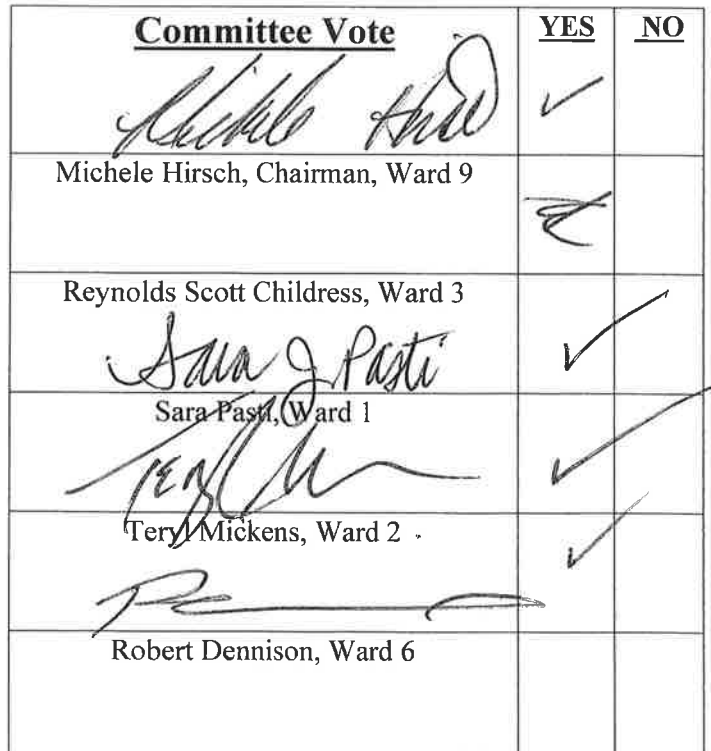 Committee Vote YES NO
Michele Hirsch, Chairman, Ward 9
Reynolds Scott Childress, Ward 3
Sara J Pasti
Sara Pasti, Ward 1
Teryl Mickens, Ward 2
Robert Dennison, Ward 6